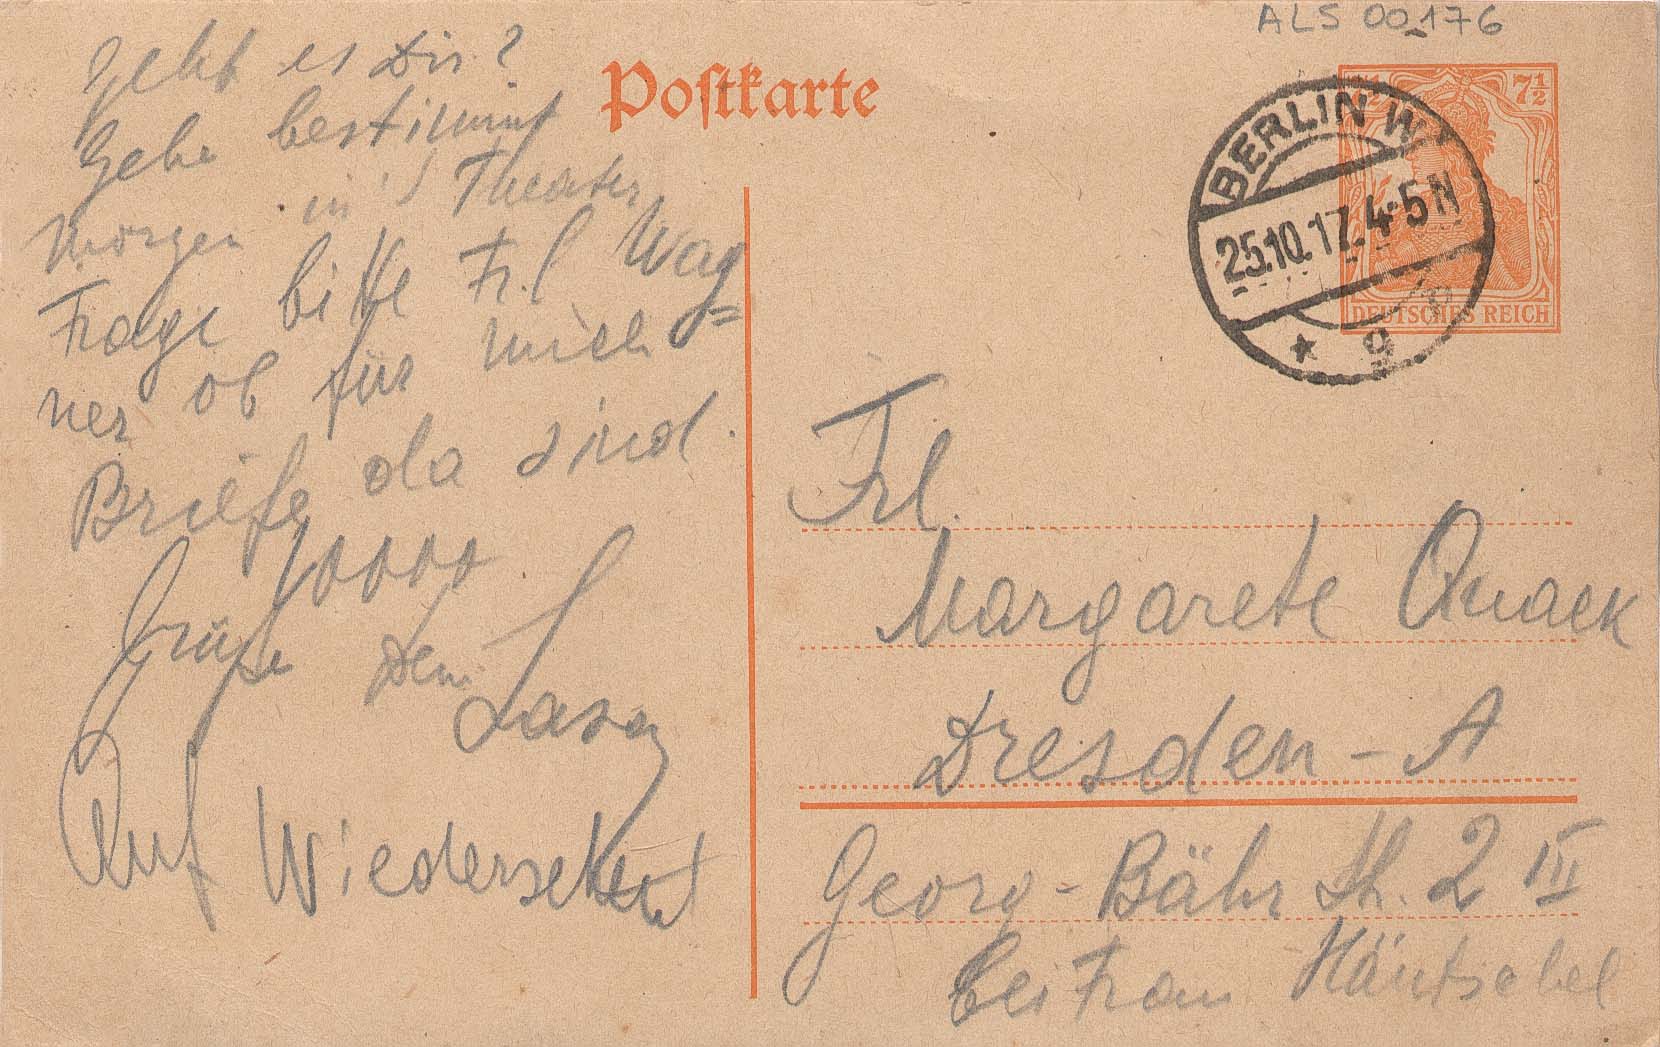 ALS 00176
Postkarte
7½
BERLIN W
25.10.17. 4-5 N
* 9
DEUTSCHES REICH
geht es Dir?
Gehe bestimmt
morgen in's Theater
Frage bitte Frl Wag=
ner ob für mich
Briefe da sind.
10000
Grüße Dein
Lasar
Auf Wiedersehen
Frl.
Margarete Quack
Dresden-A
Georg-Bähr Str. 2 III
bei Frau Häntzschel